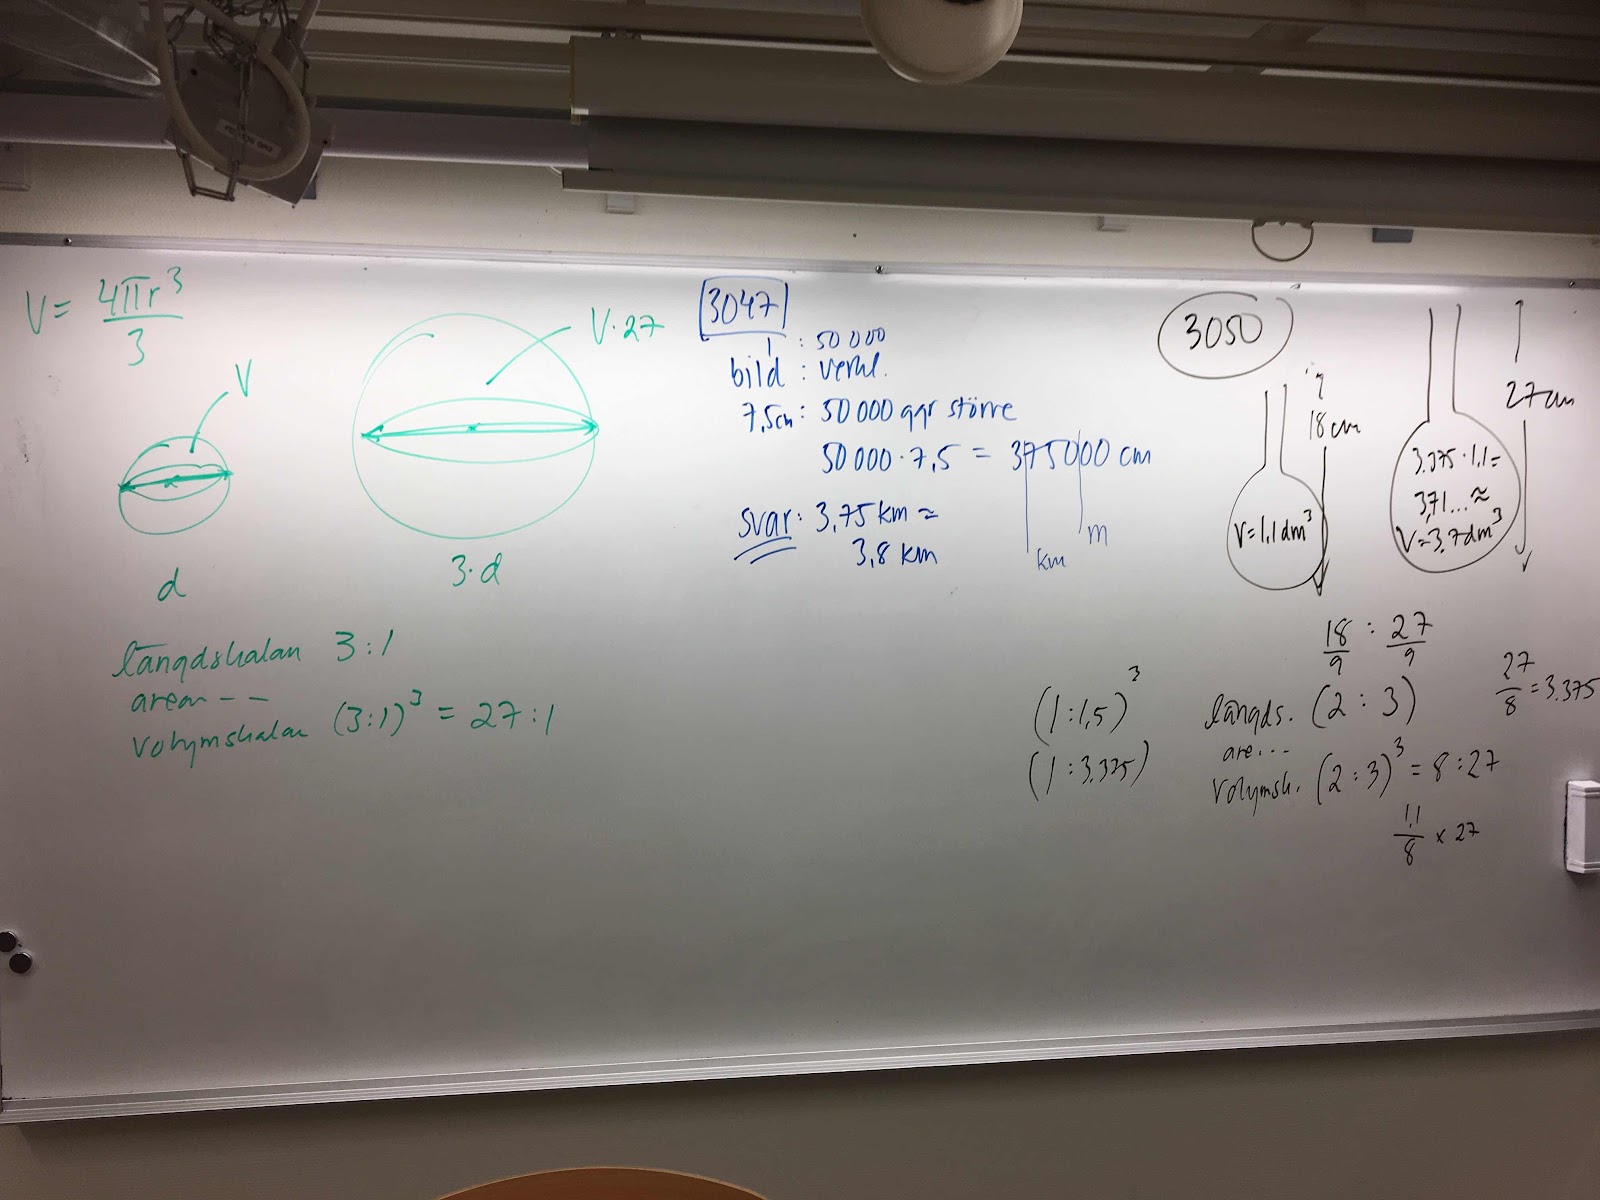 V = 4πr³
3
V
V·27
d
3·d
längdskalan 3:1
arean --
volymskalan (3:1)³ = 27:1
3047
1 : 50 000
bild : verkl.
7,5cm : 50 000 ggr större
50 000 · 7,5 = 375000 cm
km
m
svar: 3,75 km ≈
3,8 km
3050
18 cm
V=1,1 dm³
27 cm
3.375·1,1=
3,71... ≈
V=3.7dm³
18 : 27
9 9
27
8 = 3.375
(1:1,5)³
(1:3.375)
längds. (2 : 3)
are...
Volymsk. (2 : 3)³ = 8 : 27
1,1
8 × 27